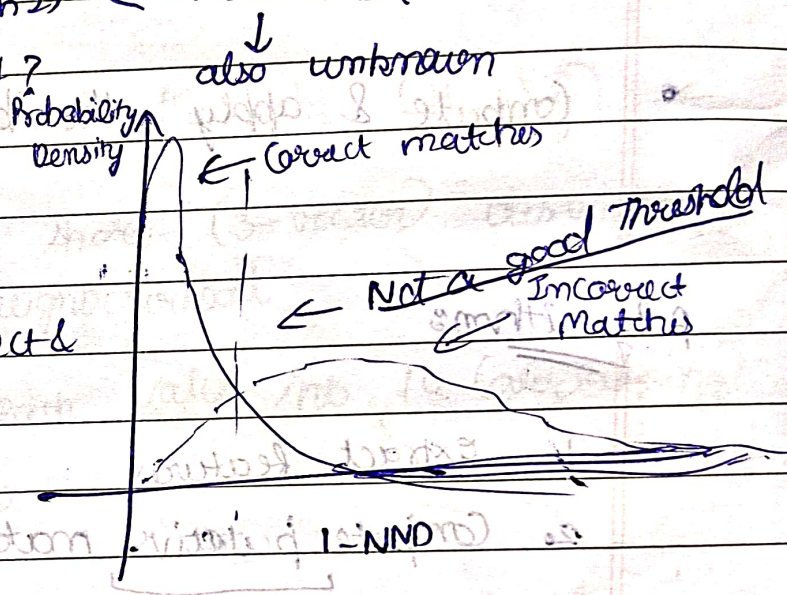 ↓
also unknown
?
Probability
Density
← Correct matches
← Not a good Threshold
Incorrect
Matches
ct &
1-NND